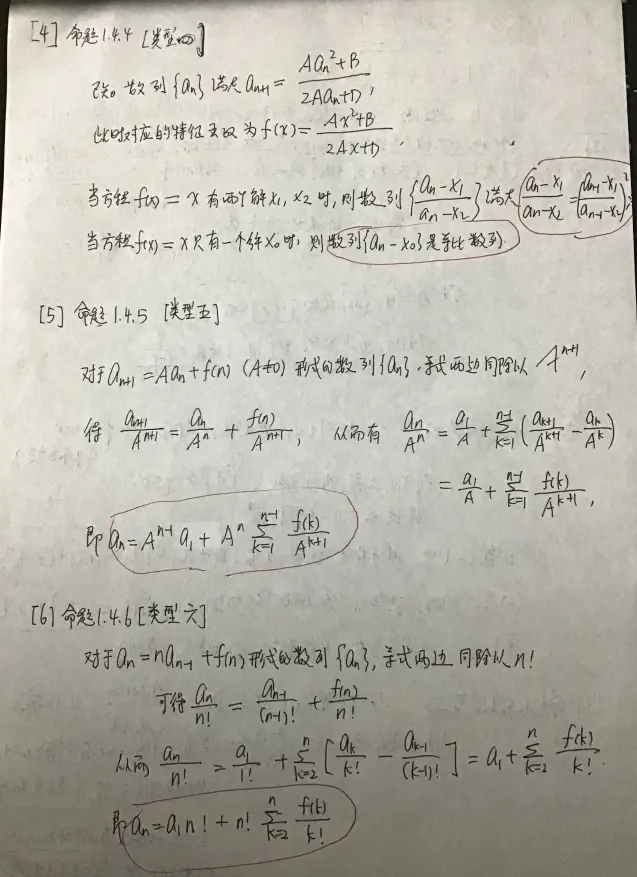 [4] 命题1.4.4 [类型四]
已知数列{aₙ}满足 aₙ₊₁ = (Aaₙ²+B)/(2Aaₙ+D),
此时对应的特征函数为 f(x) = (Ax²+B)/(2Ax+D).
当方程f(x)=x有两个解x₁, x₂时, 则数列{(aₙ-x₁)/(aₙ-x₂)}满足 (aₙ-x₁)/(aₙ-x₂) = ((aₙ₋₁-x₁)/(aₙ₋₁-x₂))²;
当方程f(x)=x只有一个解x₀时, 则数列{aₙ-x₀}是等比数列.
[5] 命题1.4.5 [类型五]
对于aₙ₊₁=Aaₙ+f(n) (A≠0) 形式的数列{aₙ}, 等式两边同除以 Aⁿ⁺¹,
得 aₙ₊₁/Aⁿ⁺¹ = aₙ/Aⁿ + f(n)/Aⁿ⁺¹, 从而有 aₙ/Aⁿ = a₁/A + Σ_{k=1}^{n-1} (aₖ₊₁/Aᵏ⁺¹ - aₖ/Aᵏ)
= a₁/A + Σ_{k=1}^{n-1} f(k)/Aᵏ⁺¹,
即 aₙ = Aⁿ⁻¹a₁ + Aⁿ Σ_{k=1}^{n-1} f(k)/Aᵏ⁺¹
[6] 命题1.4.6 [类型六]
对于aₙ=naₙ₋₁+f(n)形式的数列{aₙ}, 等式两边同除以n!
可得 aₙ/n! = aₙ₋₁/(n-1)! + f(n)/n!.
从而 aₙ/n! = a₁/1! + Σ_{k=2}^{n} [aₖ/k! - aₖ₋₁/(k-1)!] = a₁ + Σ_{k=2}^{n} f(k)/k!.
即 aₙ = a₁n! + n! Σ_{k=2}^{n} f(k)/k!